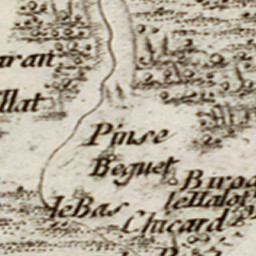 aran
llat
Pinse
Beguet
Biroa
le Bas
le Halot
Chicard